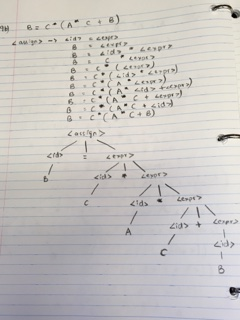 B = C * (A * C + B)
<assign> → <id> = <expr>
B = <expr>
B = <id> * <expr>
B = C * <expr>
B = C * (<expr>)
B = C * (<id> * <expr>)
B = C * (A * <expr>)
B = C * (A * <id> + <expr>)
B = C * (A * C + <expr>)
B = C * (A * C + <id>)
B = C * (A * C + B)
<assign>
<id> = <expr>
B <id> * <expr>
C <id> * <expr>
A <id> + <expr>
C <id>
B